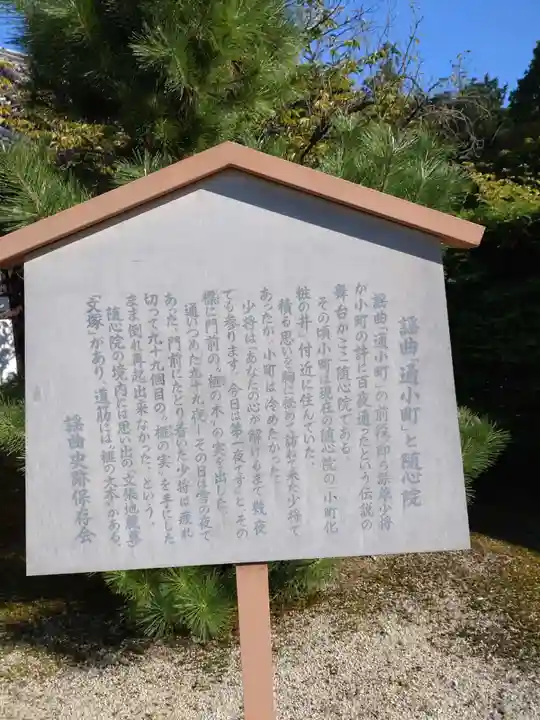 謡曲「通小町」と随心院
謡曲「通小町」の前段、即ち深草少将
が小町の許に百夜通ったという伝説の
舞台がここ随心院である。
その頃小町は現在の随心院の「小町化
粧の井」付近に住んでいた。
積る思いを胸に秘めて訪ねて来た少将で
あったが、小町は冷めたかった。
少将は「あなたの心が解けるまで幾夜
でも参ります。今日は第一夜です」とその
標に門前の〝榧の木〟の実を出した。
通いつめた九十九夜―その日は雪の夜で
あった。門前にたどり着いた少将は疲れ
切って九十九個目の〝榧の実〟を手にした
まま倒れ再起出来なかった、という。
随心院の境内には思い出の「文張地蔵尊」
「文塚」があり、道筋には〝榧の大木〟がある。
謡曲史跡保存会